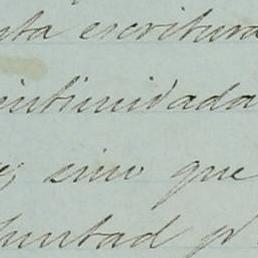 ta escritura
intimidada
sino que
luntad